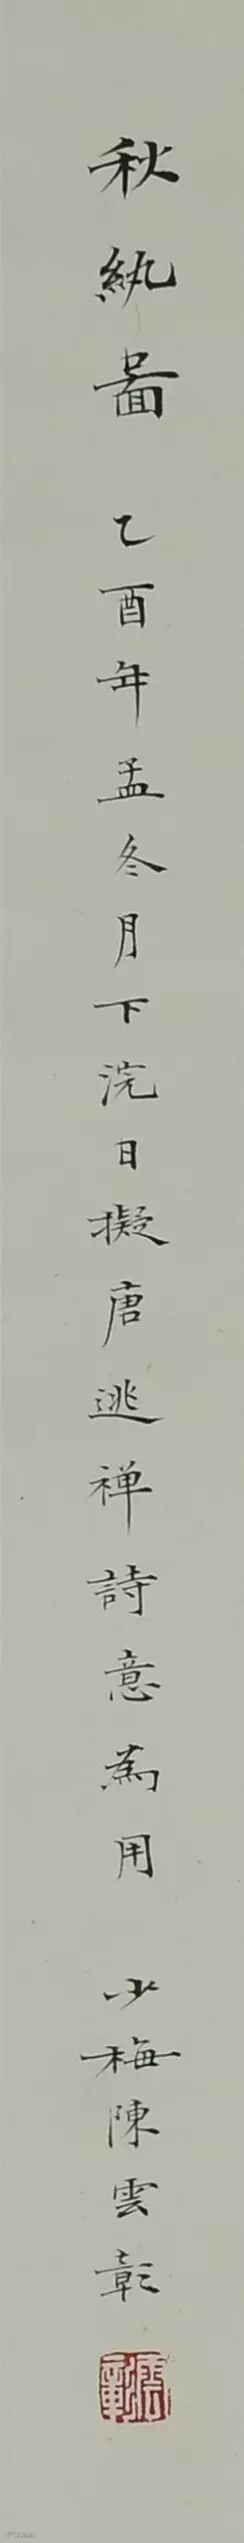 秋紈啚 乙酉年孟冬月下浣日擬唐逃禅詩意為用 少梅陳雲彰
雲彰